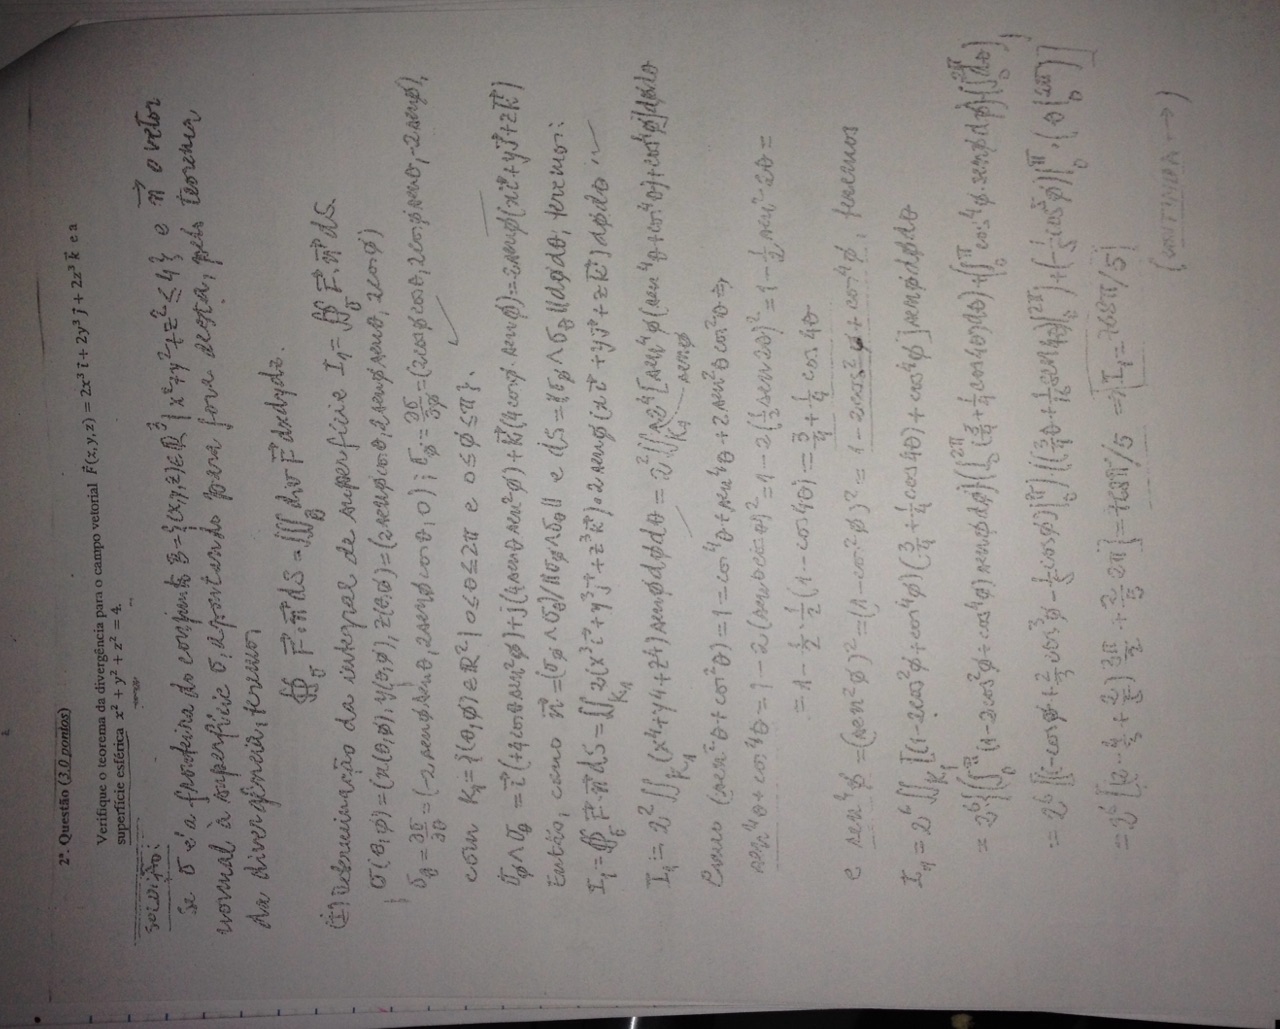 2ª. Questão (3,0 pontos)
Verifique o teorema da divergência para o campo vetorial F⃗(x, y, z) = 2x³ i⃗ + 2y³ j⃗ + 2z³ k⃗ e a
superfície esférica x² + y² + z² = 4.
SOLUÇÃO:
Se σ é a fronteira do conjunto B={(x,y,z)∈ℝ³ | x²+y²+z²≤4} e n⃗ o vetor
normal à superfície σ, apontando para fora desta, pelo teorema
da divergência, teremos
∯_σ F⃗.n⃗ dS = ∭_B div F⃗ dxdydz.
(I) Determinação da integral de superfície I₁= ∯_σ F⃗.n⃗ dS.
σ(θ,φ)=(x(θ,φ), y(θ,φ), z(θ,φ)=(2senφcosθ, 2senφsenθ, 2cosφ)
σ_θ = ∂σ/∂θ = (-2senφsenθ, 2senφcosθ, 0) ; σ_φ = ∂σ/∂φ = (2cosφcosθ, 2cosφsenθ, -2senφ),
com K₁={(θ,φ)∈ℝ² | 0≤θ≤2π e 0≤φ≤π}.
σ_φ∧σ_θ = i⃗(+4cosθsen²φ)+j(4senθsen²φ)+k⃗(4cosφ.senφ)=2senφ(xi⃗+yj⃗+zk⃗)
Então, como n⃗=(σ_φ∧σ_θ)/‖σ_φ∧σ_θ‖ e dS=‖σ_φ∧σ_θ‖dφdθ, teremos:
I₁=∯_σ F⃗.n⃗ dS=∬_K₁ 2(x³i⃗+y³j⃗+z³k⃗)•2senφ(xi⃗+yj⃗+zk⃗)dφdθ
I₁=2²∬_K₁ (x⁴+y⁴+z⁴)senφdφdθ = 2²∬_K₁ 2⁴[sen⁴φ(sen⁴θ+cos⁴θ)+cos⁴φ]dφdθ
senφ
Como (sen²θ+cos²θ)=1=cos⁴θ+sen⁴θ+2sen²θcos²θ⇒
sen⁴θ+cos⁴θ=1-2(senθcosθ)²=1-2(1/2 sen2θ)²=1-1/2 sen²2θ=
=1-1/2.1/2(1-cos4θ)=3/4+1/4 cos4θ
e sen⁴φ=(sen²φ)²=(1-cos²φ)²=1-2cos²φ+cos⁴φ, teremos
I₁=2⁶∬_K₁[(1-2cos²φ+cos⁴φ)(3/4+1/4cos4θ)+cos⁴φ]senφdφdθ
=2⁶{(∫₀^π(1-2cos²φ+cos⁴φ)senφdφ)(∫₀^2π(3/4+1/4cos4θ)dθ)+(∫₀^πcos⁴φ.senφdφ)(∫₀^2πdθ)}
=2⁶[((-cosφ+2/3cos³φ-1/5cosφ)|₀^π).((3/4θ+1/16sen4θ)|₀^2π)+(-1/5cos⁵φ)|₀^π.(θ|₀^2π)]
=2⁶[(2-4/3+2/5)3π/2+2/5 2π]=768π/5 ⇒ I₁=768π/5
(CONTINUA→)